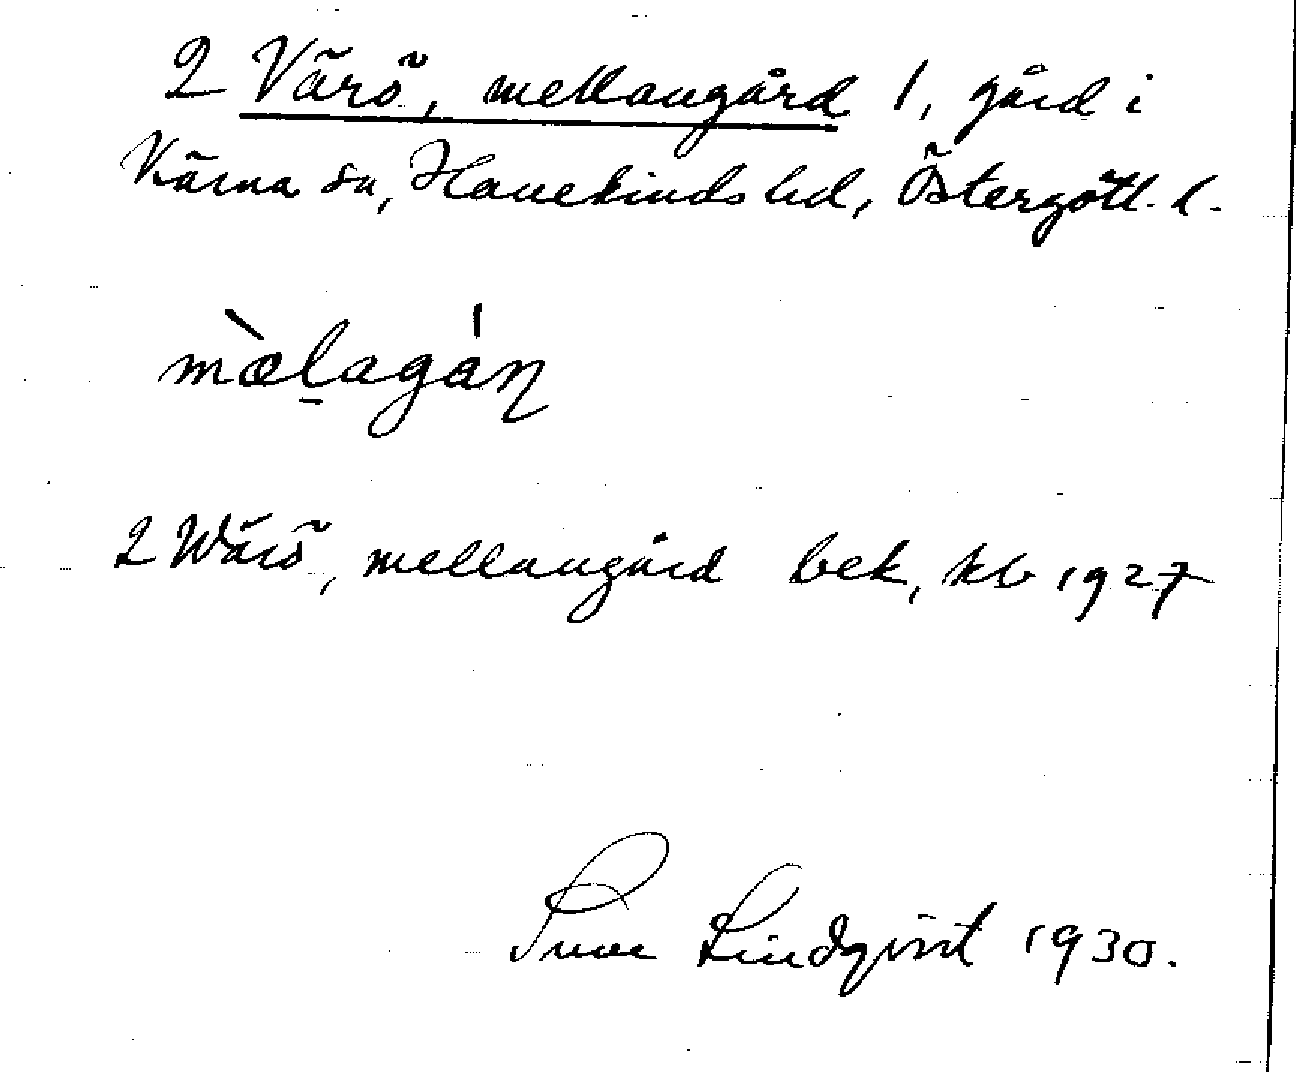 2 Värö, mellangård 1, gård i
Kärna sn, Hanekinds hd, Östergötl. l.
mæ̀lagáɳ
2 Wärö, mellangård bek, kb 1927
Lindqvist 1930.